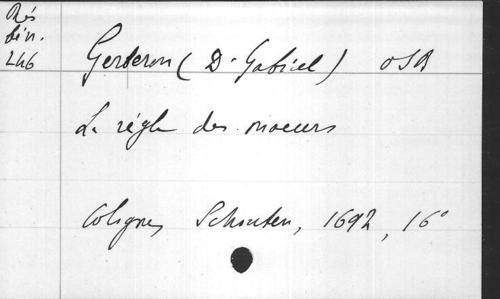 Rés
bin.
246
Gerberon (D. Gabriel) OSB
La règle des moeurs
Cologne, Schouten, 1692, 16°